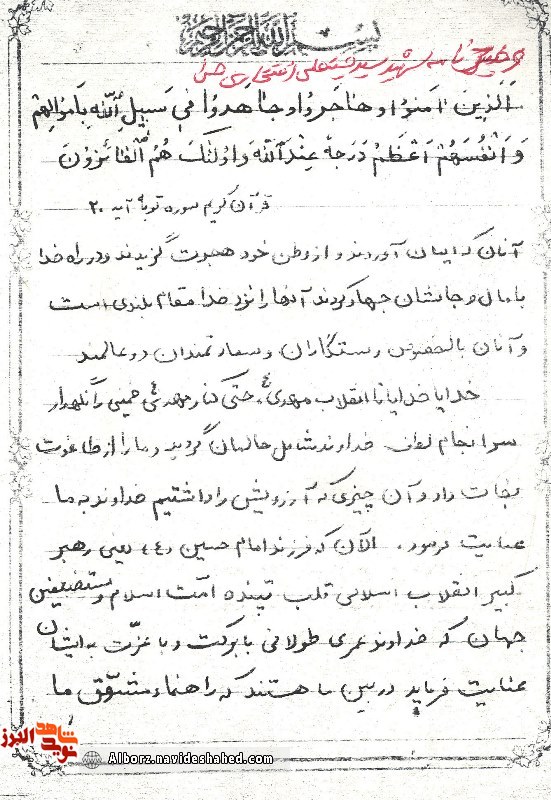 بسم الله الرحمن الرحیم
وصیت نامه شهید سید حسینعلی افتخاری
الَّذِینَ امَنُوا وهَاجَروُا وجَاهدوُا فی سَبیلِ اللهِ بِاَموالِهِمْ
وَ اَنْفُسِهِمْ اَعْظَمُ دَرَجةً عِنْدَ اللهِ وَ اوُلئکَ هُمُ الْفَائِزوُنَ
قرآن کریم سوره توبه آیه ۲۰
آنان که ایمان آوردند و از وطن خود هجرت گزیدند و در راه خدا
با مال و جانشان جهاد کردند آنها را نزد خدا مقام بلندی است
و آنان بالخصوص رستگاران و سعادتمندان دو عالمند
خدایا خدایا تا انقلاب مهدی حتی کنار مهدی خمینی را نگهدار
سرانجام لطف خداوند شامل حالمان گردید و ما را از طاغوت
نجات داد و آن چیزی که آرزویش را داشتیم خداوند به ما
عنایت فرمود. الآن که فرزند امام حسین (ع) یعنی رهبر
کبیر انقلاب اسلامی قلب تپنده امت اسلام و مستضعفین
جهان که خداوند عمری طولانی با برکت و با عزّت به ایشان
عنایت فرماید در بین ما هستند که راهنما و مشوّق ما
نوید شاهد البرز
Alborz.navideshahed.com